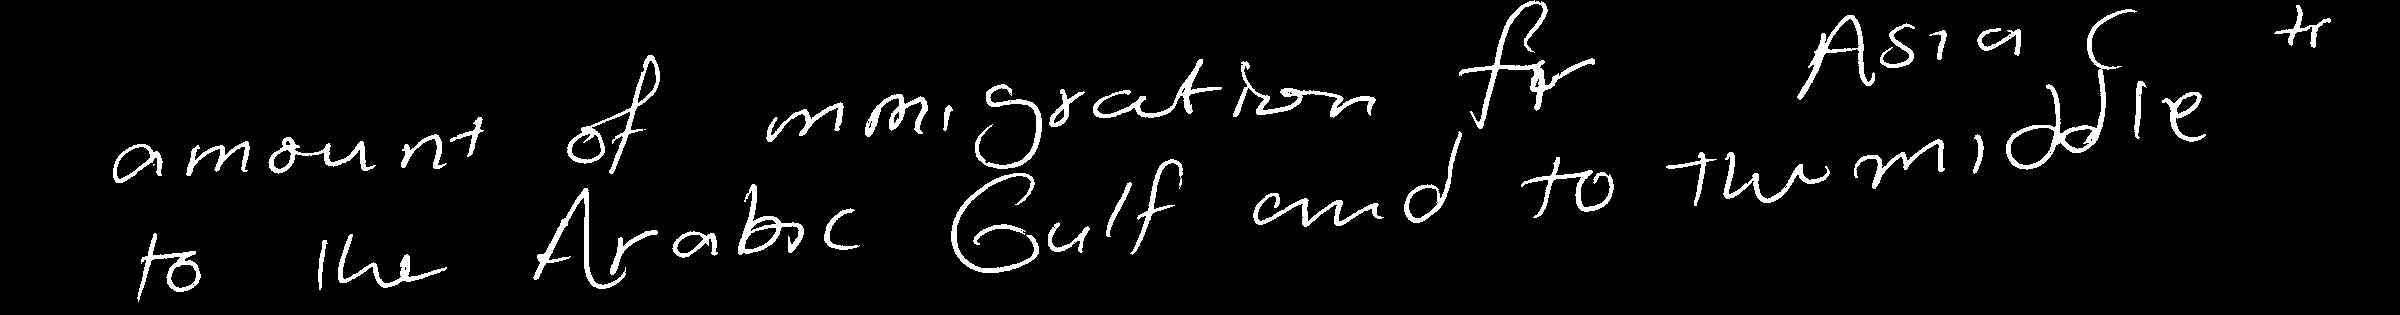 amount of immigration for Asia
to the Arabic Gulf and to the middle